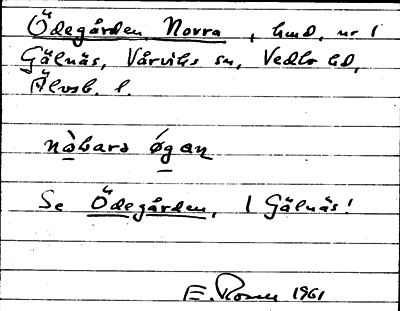 Ödegården Norra, hmd, nr 1
Gälnäs, Vårviks sn, Vedbo hd,
Älvsb. l.
nòbara øgan
Se Ödegården, 1 Gälnäs!
E. Rosen 1961